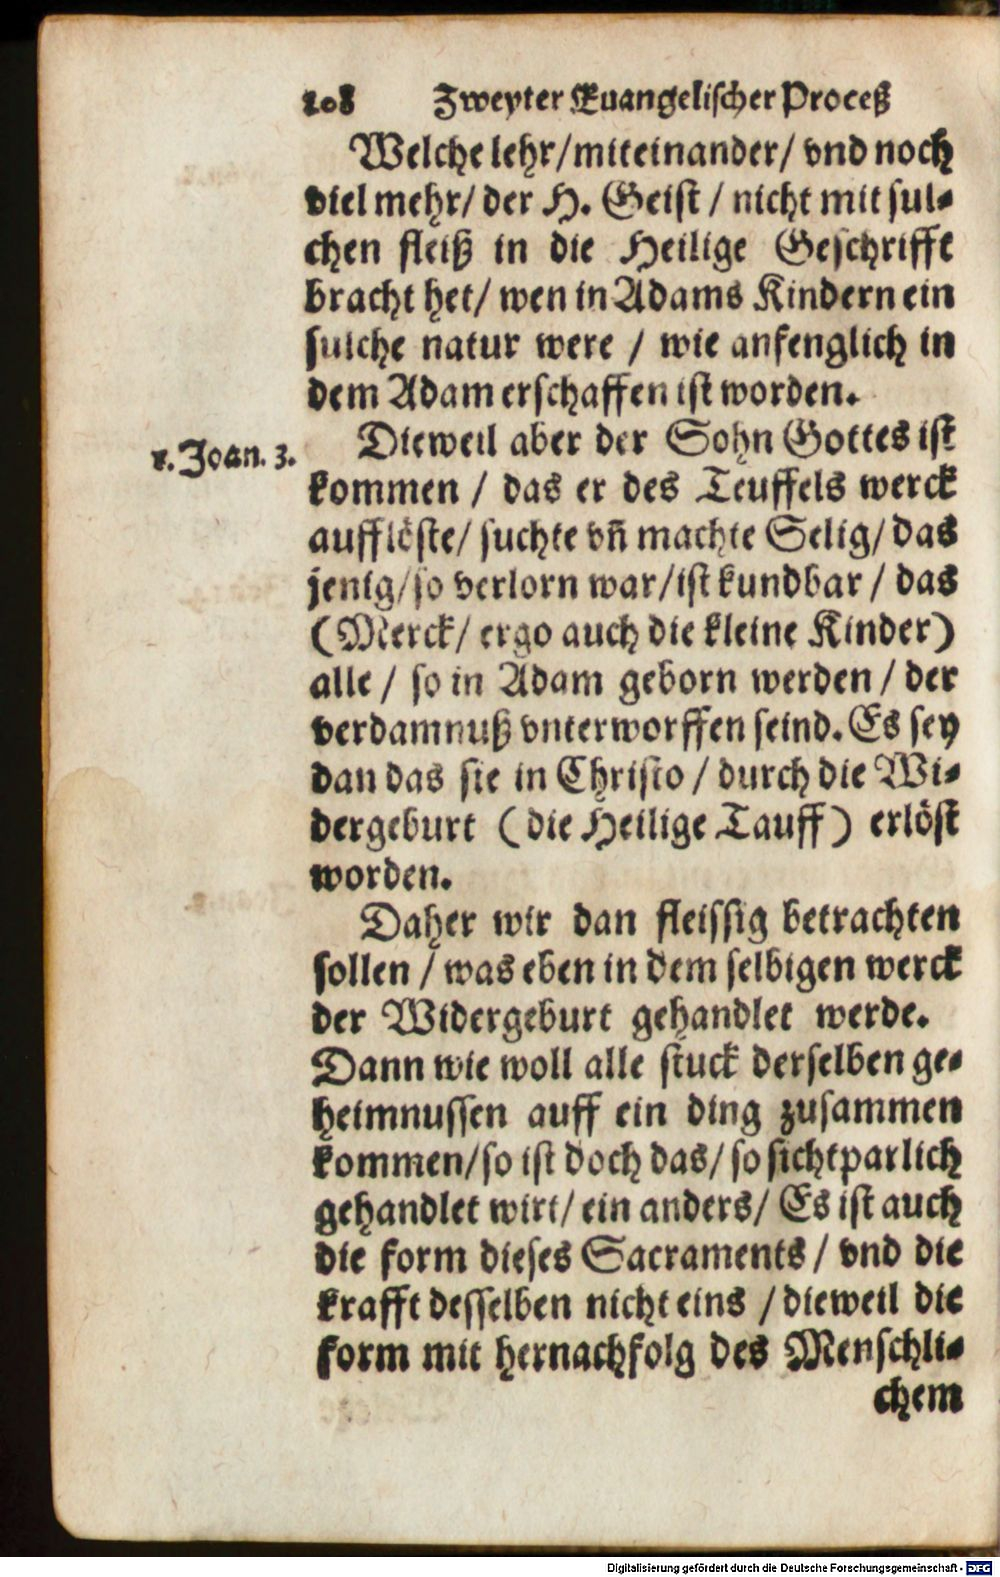 208 Zweyter Euangelischer Proceß
Welche lehr/miteinander/ vnd noch
viel mehr/ der H. Geist / nicht mit sul-
chen fleiß in die Heilige Geschrifft
bracht het/ wen in Adams Kindern ein
sulche natur were / wie anfenglich in
dem Adam erschaffen ist worden.
1. Joan. 3.
Dieweil aber der Sohn Gottes ist
kommen / das er des Teuffels werck
aufflöste/ suchte vñ machte Selig/ das
jenig/so verlorn war/ist kundbar / das
(Merck/ ergo auch die kleine Kinder)
alle / so in Adam geborn werden / der
verdamnuß vnterworffen seind. Es sey
dan das sie in Christo / durch die Wi-
dergeburt (die Heilige Tauff) erlöst
worden.
Daher wir dan fleissig betrachten
sollen / was eben in dem selbigen werck
der Widergeburt gehandlet werde.
Dann wie woll alle stuck derselben ge-
heimnussen auff ein ding zusammen
kommen/so ist doch das/ so sichtparlich
gehandlet wirt/ ein anders/ Es ist auch
die form dieses Sacraments / vnd die
krafft desselben nicht eins / dieweil die
form mit hernachfolg des Menschli-
chem
Digitalisierung gefördert durch die Deutsche Forschungsgemeinschaft - DFG